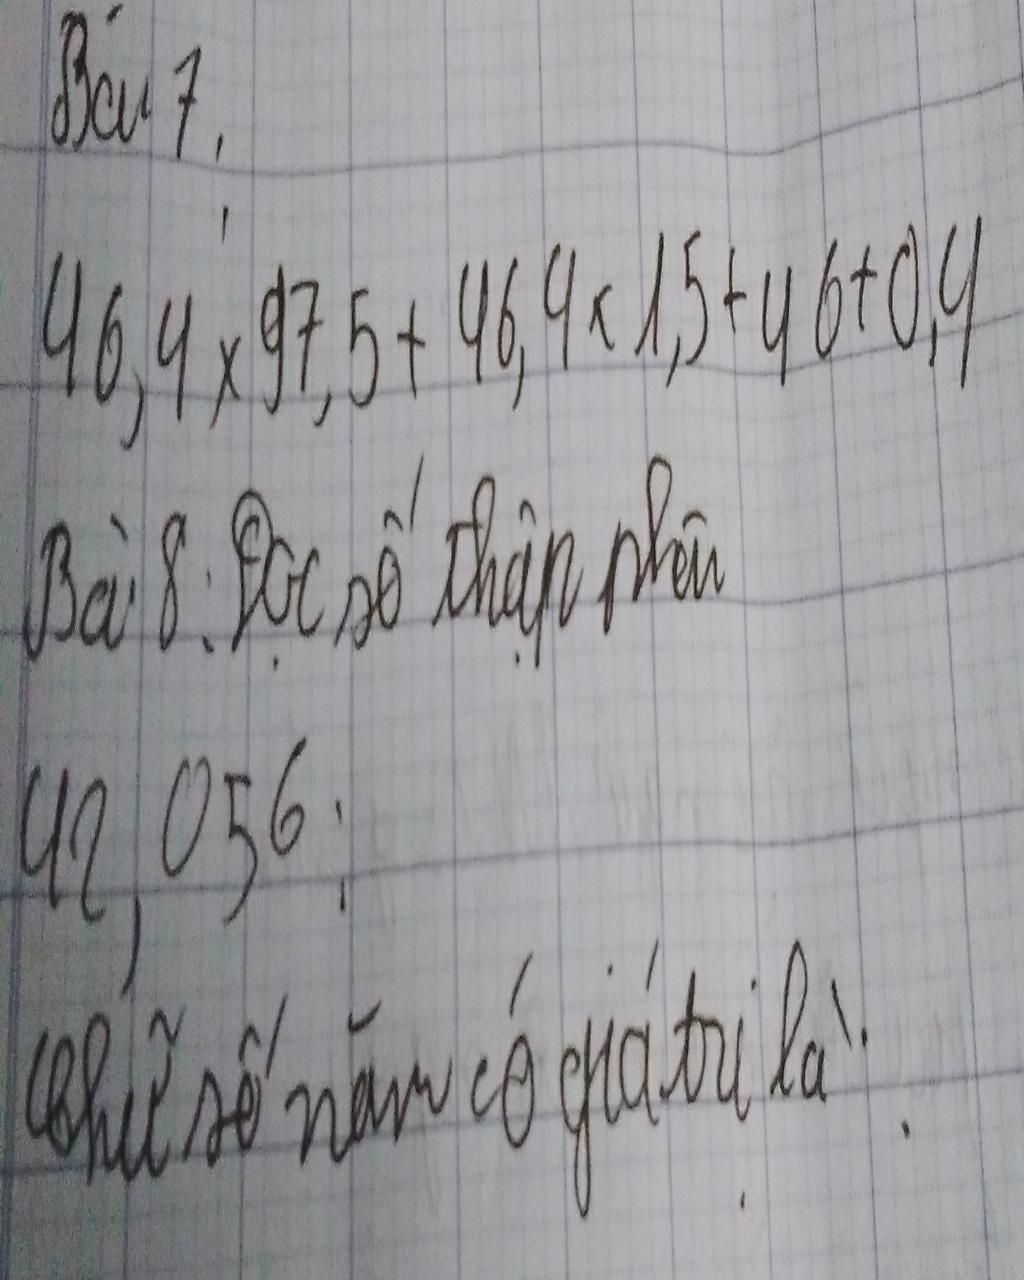 Bài 7:
46,4 x 97,5 + 46,4 x 1,5 + 46 + 0,4
Bài 8: Đọc số thập phân
42,056:
Chữ số năm có giá trị là: